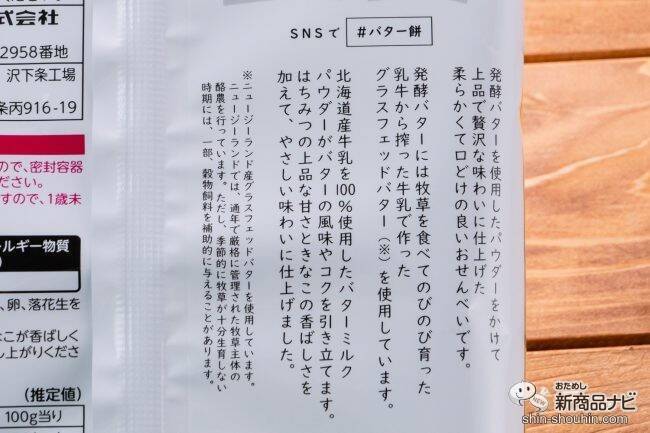 式会社
2958番地
沢下条工場
条丙916-19
ので、密封容器
ださい。
すので、1歳未
ルギー物質
、卵、落花生を
こが香ばしく
し上がりくださ
(推定値)
100g当り
SNSで #バター餅
発酵バターを使用したパウダーをかけて
上品で贅沢な味わいに仕上げた
柔らかくて口どけの良いおせんべいです。
発酵バターには牧草を食べてのびのび育った
乳牛から搾った牛乳で作った
グラスフェッドバター(※)を使用しています。
北海道産牛乳を100%使用したバターミルク
パウダーがバターの風味やコクを引き立てます。
はちみつの上品な甘さときなこの香ばしさを
加えて、やさしい味わいに仕上げました。
※ニュージーランド産グラスフェッドバターを使用しています。
ニュージーランドでは、通年で厳格に管理された牧草主体の
酪農を行っています。ただし、季節的に牧草が十分生育しない
時期には、一部、穀物飼料を補助的に与えることがあります。
おためし
新商品ナビ
shin-shouhin.com
NEW